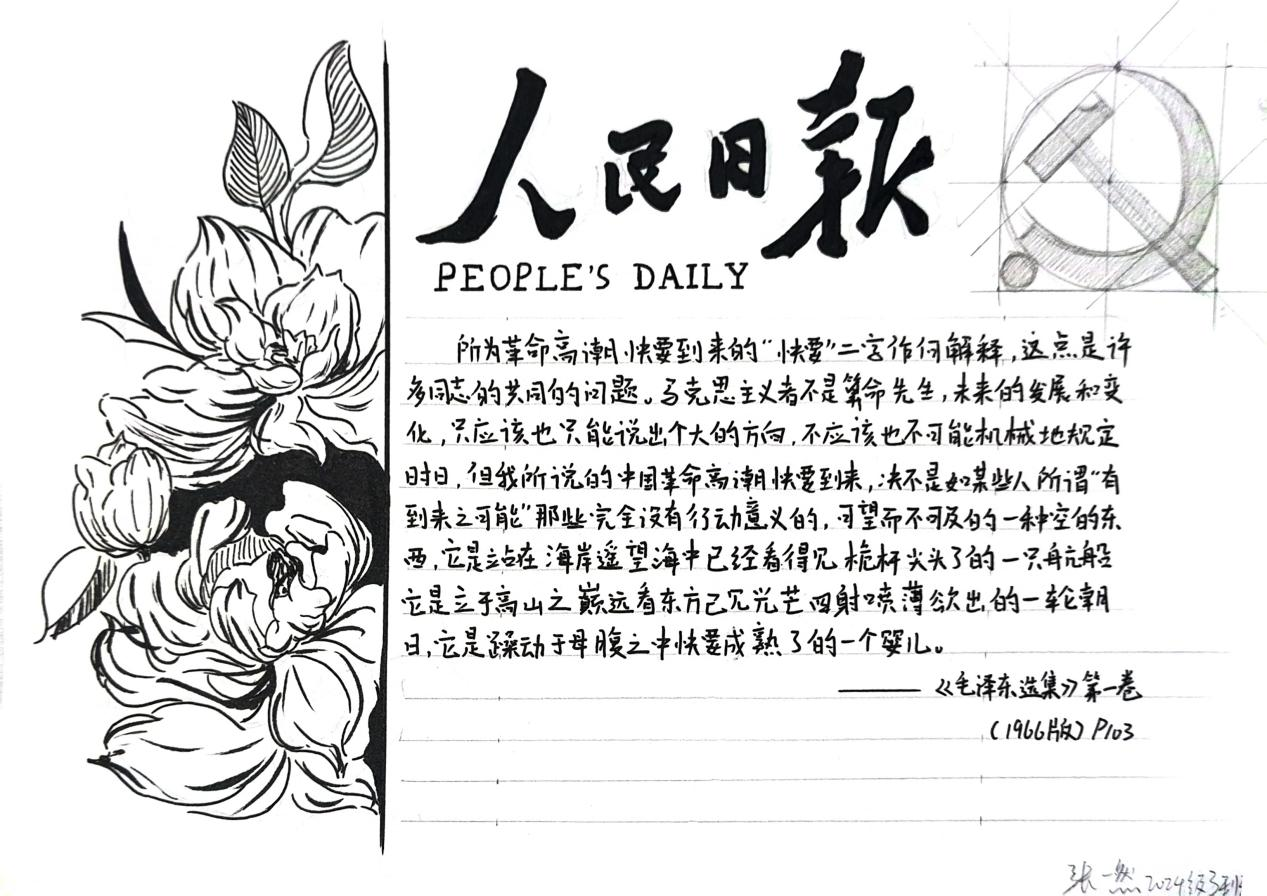 人民日報
PEOPLE'S DAILY
所为革命高潮快要到来的“快要”二字作何解释，这点是许
多同志的共同的问题。马克思主义者不是算命先生，未来的发展和变
化，只应该也只能说出个大的方向，不应该也不可能机械地规定
时日，但我所说的中国革命高潮快要到来，决不是如某些人所谓“有
到来之可能”那些完全没有行动意义的，可望而不可及的一种空的东
西，它是站在海岸遥望海中已经看得见桅杆尖头了的一只航船
它是立于高山之巅远看东方已见光芒四射喷薄欲出的一轮朝
日，它是躁动于母腹之中快要成熟了的一个婴儿。
——《毛泽东选集》第一卷
（1966版）P103
张一然 2024级3班